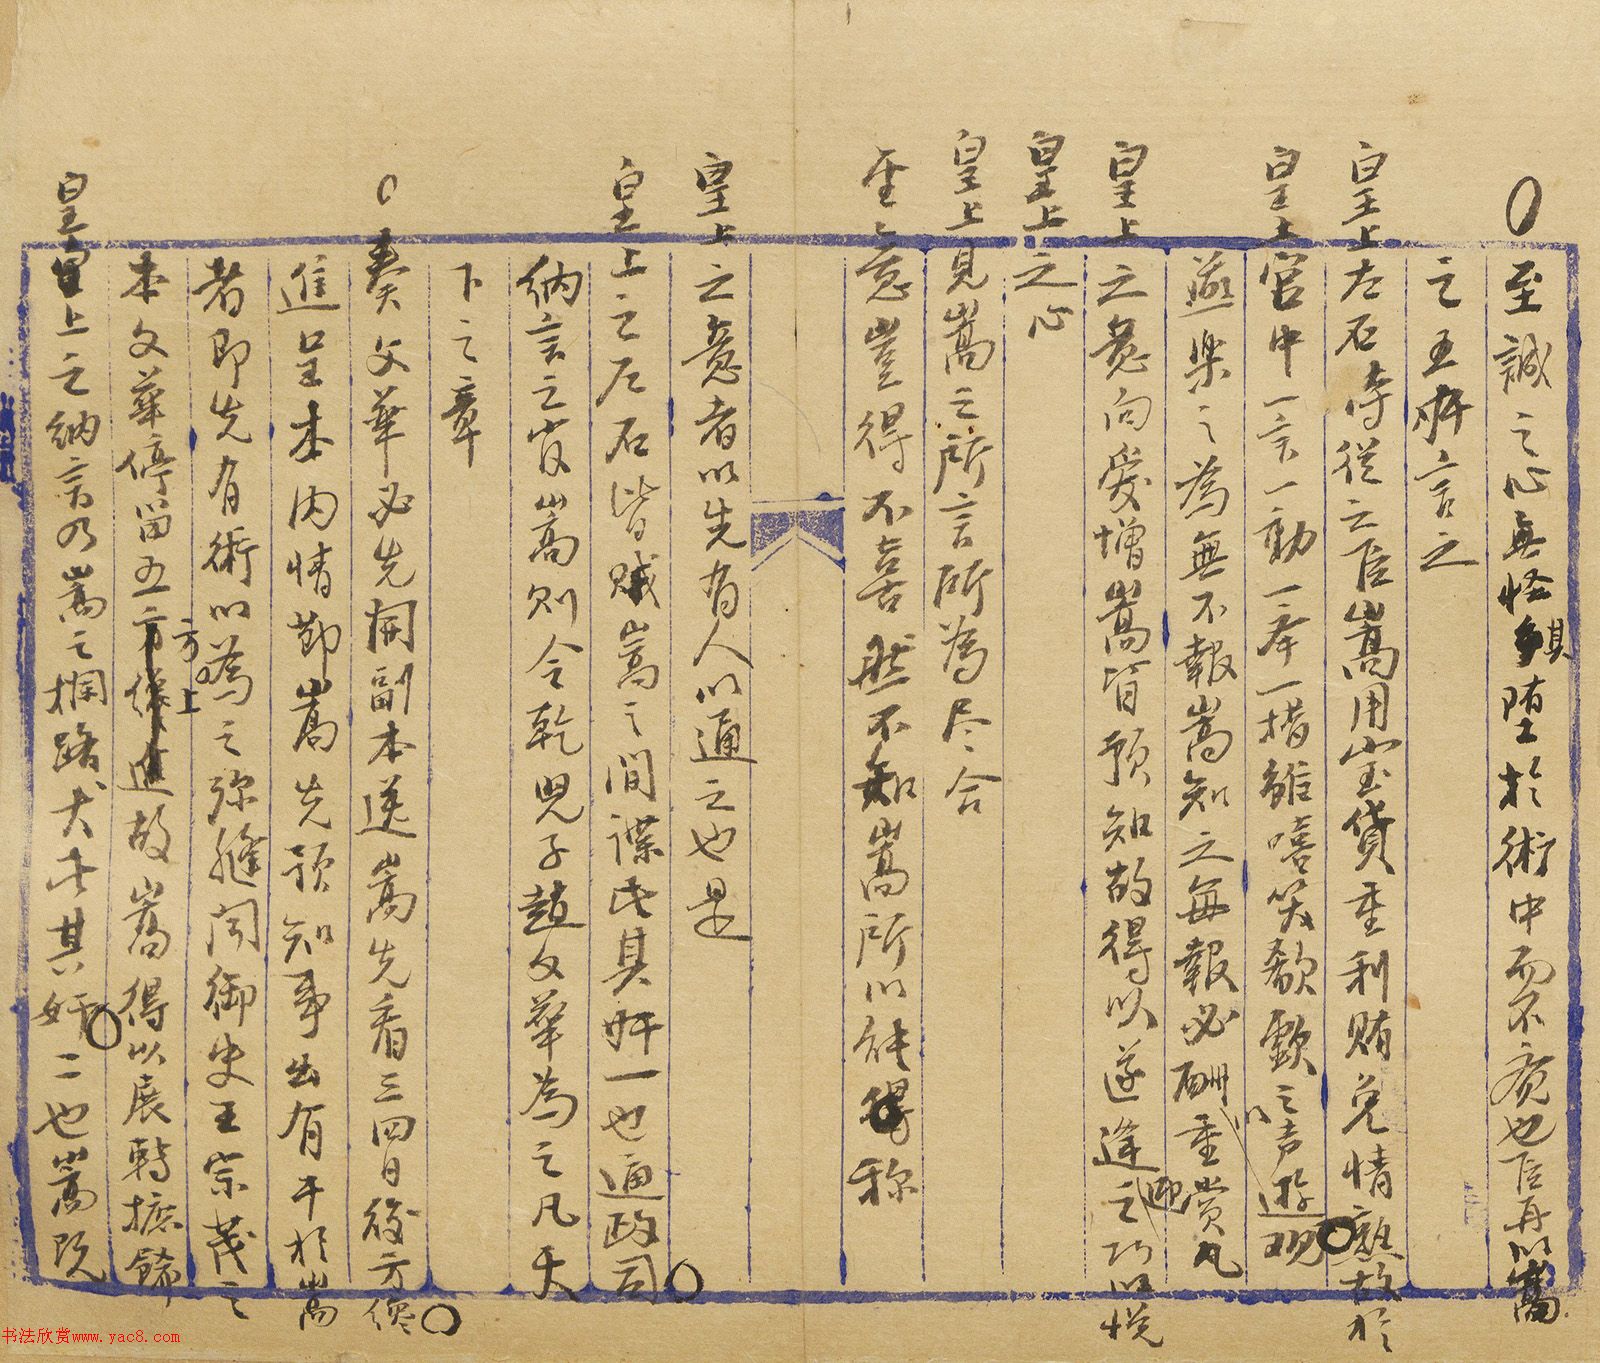 至誠之心無怪其堕於術中而不覚也臣再以嵩
之五奸言之
皇上左右侍從之臣嵩用寳貨重利賄兑情熟故於
皇上宫中一言一動一举一措雖嘻笑欷歔之声遊观
燕楽之為無不報嵩知之每報必酬以重賞凡
皇上之意向愛憎嵩皆預知故得以遂逢迎之巧以悦
皇上之心
皇上見嵩之所言所為尽合
圣意豈得不喜然不知嵩所以能得称
皇上之意者以先有人以通之也是
皇上之左右皆贼嵩之間諜此其奸一也通政司
納言之官嵩则令乾兒子趙文華為之凡天
下之章
奏文華必先開副本送嵩先看三四日後方纔
進呈本内情節嵩先預知事出有干於嵩
者即先有術以為之弥縫聞御史王宗茂之
本文華停留五日方上故嵩得以展轉摭餙
皇上之納言乃嵩之攔路犬此其奸二也嵩既
书法欣赏www.yac8.com